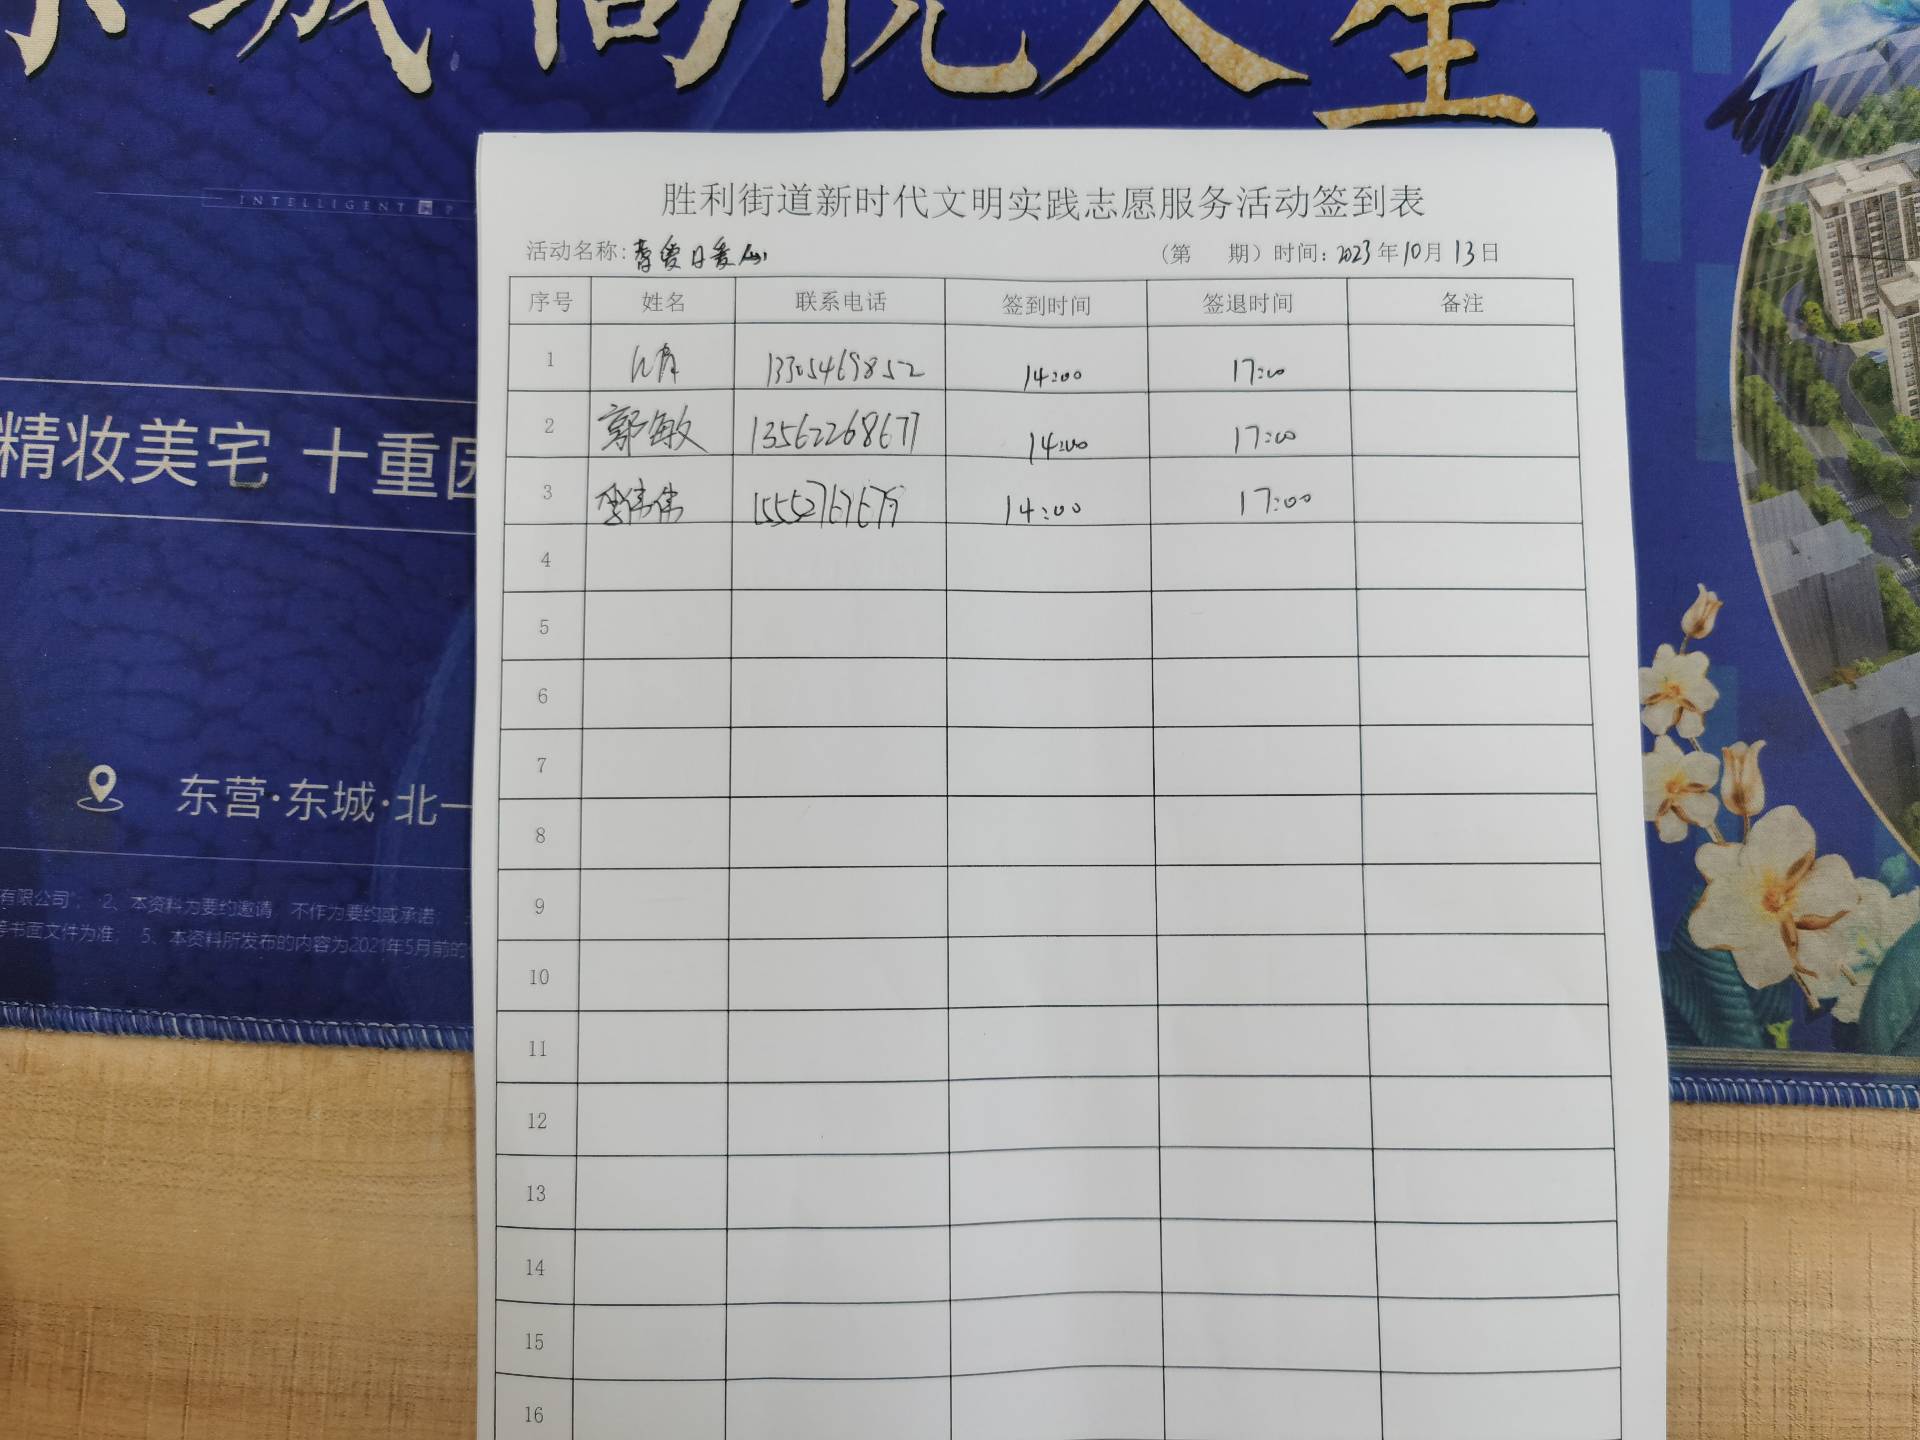 东城 尚悦人生
INTELLIGENT P
精妆美宅 十重园
东营·东城·北一
有限公司"; 2、本资料为要约邀请,不作为要约或承诺;
等书面文件为准; 5、本资料所发布的内容为2021年5月前的
胜利街道新时代文明实践志愿服务活动签到表
活动名称: (第 期) 时间: 2023年10月13日
序号 姓名 联系电话 签到时间 签退时间 备注
1 13305469852 14:00 17:00
2 郭敏 13562268677 14:00 17:00
3 李伟伟 14:00 17:00
4
5
6
7
8
9
10
11
12
13
14
15
16